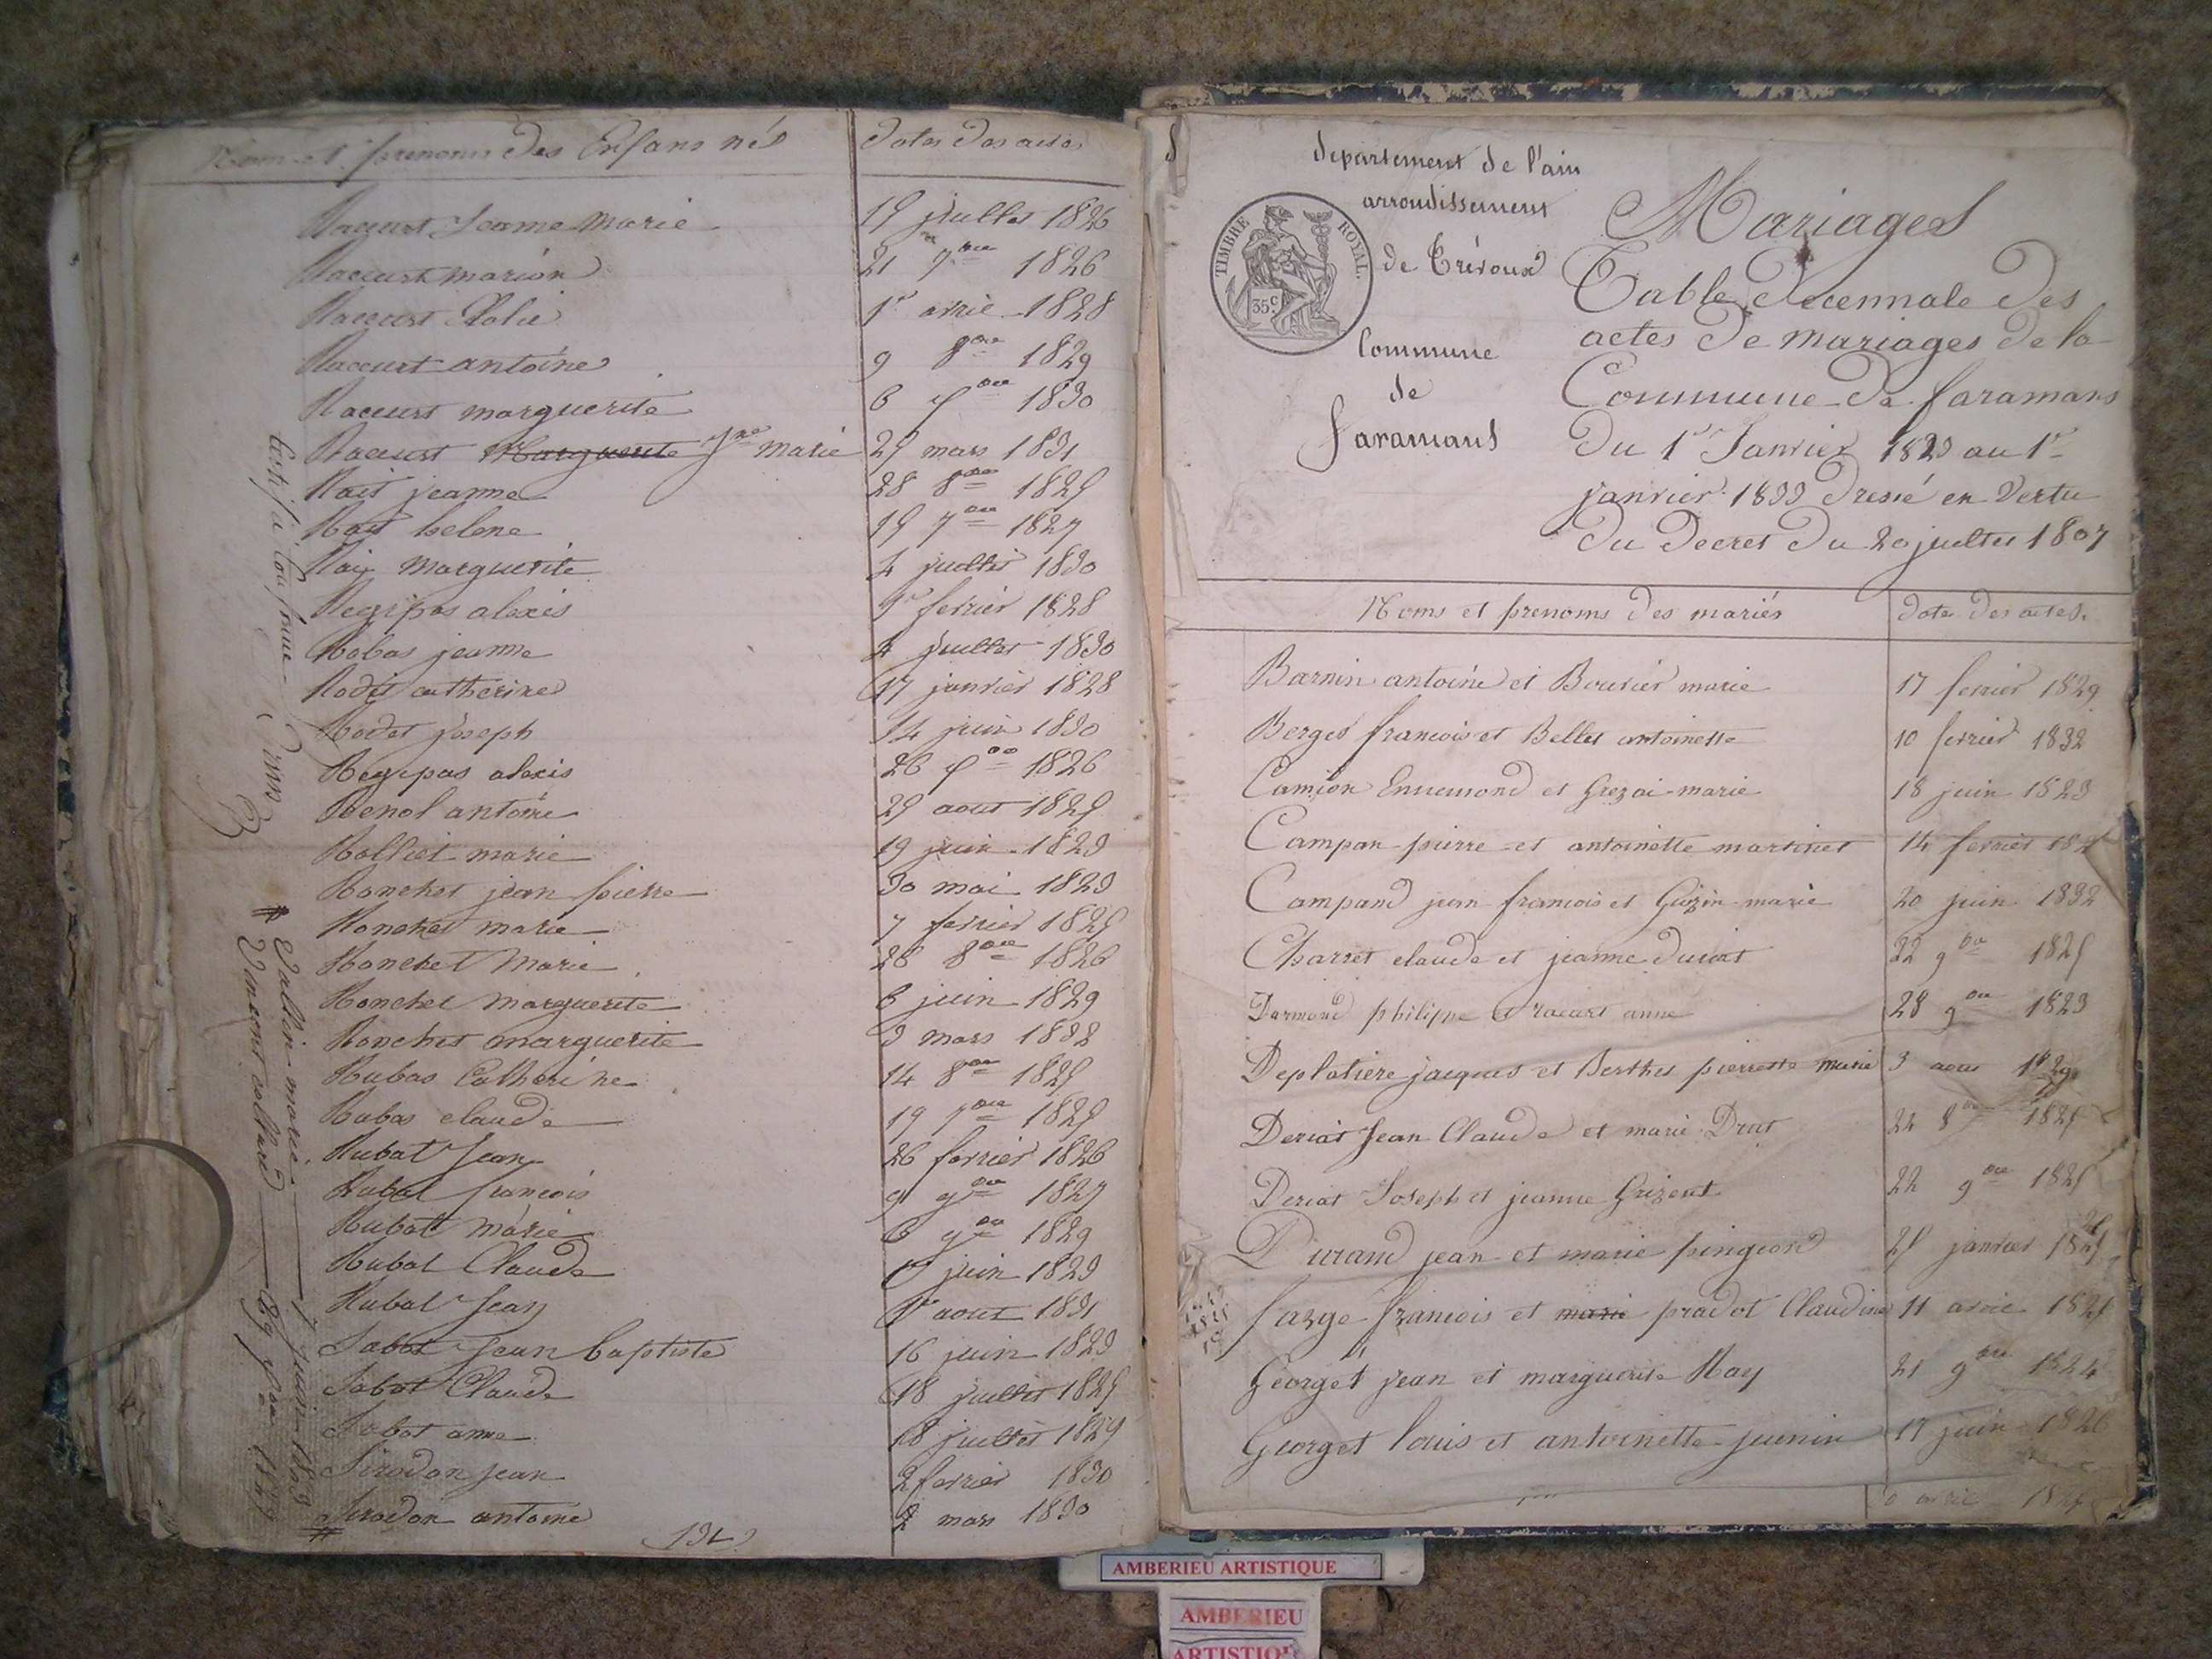 Noms et prenoms des Enfans nés
Dates des actes
Raccurt Jeanne Marie 19 juillet 1826
Raccurt marion 21 7bre 1826
Raccurt 1er avril 1828
Raccurt antoine 9 8bre 1829
Raccurt marguerite 1830
Raccurt Marguerite Jne Marie 29 mars 1831
Rait jeanne 28 8bre 1825
helene 19 7bre 1827
marguerite 4 juillet 1830
Regipas alexis fevrier 1828
Robas jeanne 4 juillet 1830
Rodet catherine 17 janvier 1828
Rodet joseph 14 juin 1830
Regipas alexis 1826
Renol antoine 29 aout 1825
Rolliet marie 19 juin 1823
Ronchet jean pierre 30 mai 1823
Ronchet marie 7 fevrier 1825
Ronchet Marie 26 8bre 1826
Ronchet Marguerite 6 juin 1829
Ronchet marguerite 3 mars 1832
Rubas Catherine 14 8bre 1825
Rubas claude 19 7bre 1825
Rubat Jean 26 fevrier 1826
Rubat francois 9 9bre 1827
Rubatt marie 6 9bre 1829
Rubat Claude juin 1823
Rubat Jean 1er aout 1831
Sabot Jean baptiste 16 juin 1823
Sabot Claude 18 juillet 1825
Sabot anne 18 juillet 1829
Sirodon jean 2 fevrier 1830
# Sirodon antoine 2 mars 1830
# Vallin marie juin 1823
Vincent
departement de l'ain
arrondissement
de Trévoux
TIMBRE ROYAL.
35c
Commune
de
Faramans
Mariages
Table decennale des
actes de mariages de la
Commune de faramans
Du 1er Janvier 1823 au 1er
janvier 1833 dressé en Vertu
du Decret du 20 juillet 1807
Noms et prenoms des mariés
date des actes.
Barnin antoine et Bouvier marie 17 fevrier 1829
Berger francois et Bellet antoinette 10 fevrier 1832
Camion Ennemond et Grezai marie 18 juin 1823
Campan pierre et antoinette martinet 14 fevrier
Campand jean francois et Guizin marie 20 juin 1832
Charset claude et jeanne duriat 22 9bre 1825
Darmand philippe et racurt anne 28 9bre 1823
Deplatiere jacques et Berthet pierrette marie 3 aout 1829
Deriat Jean Claude et marie Drut 24 8bre 1825
Deriat Joseph et jeanne Grizent 22 9bre 1825
Durand jean et marie pingeond 25 janvier
farge francois et marie pradot Claudine 11 avril
Georget jean et marguerite Ray 21 9bre 1824
Georget louis et antoinette junin 17 juin 1826
avril
AMBERIEU ARTISTIQUE
AMBERIEU
ARTISTIQUE